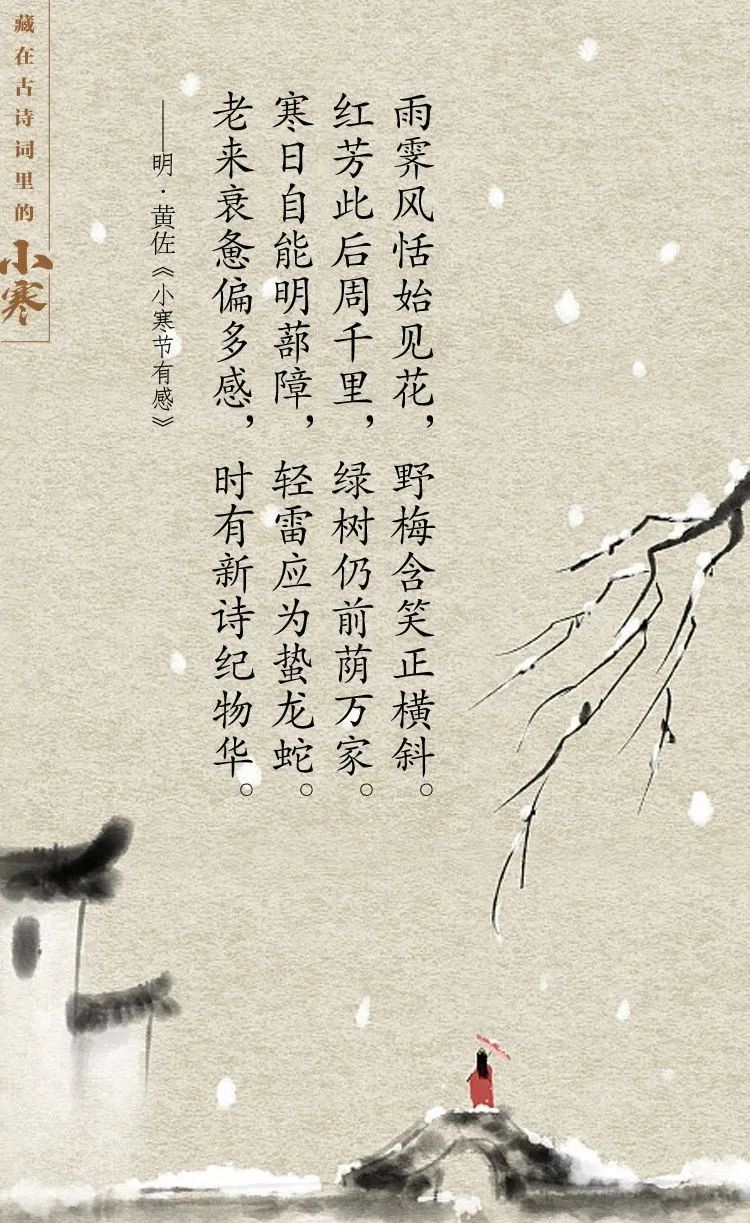 藏在古诗词里的
小寒
雨霁风恬始见花，野梅含笑正横斜。
红芳此后周千里，绿树仍前荫万家。
寒日自能明蔀障，轻雷应为蛰龙蛇。
老来衰惫偏多感，时有新诗纪物华。
——明·黄佐《小寒节有感》